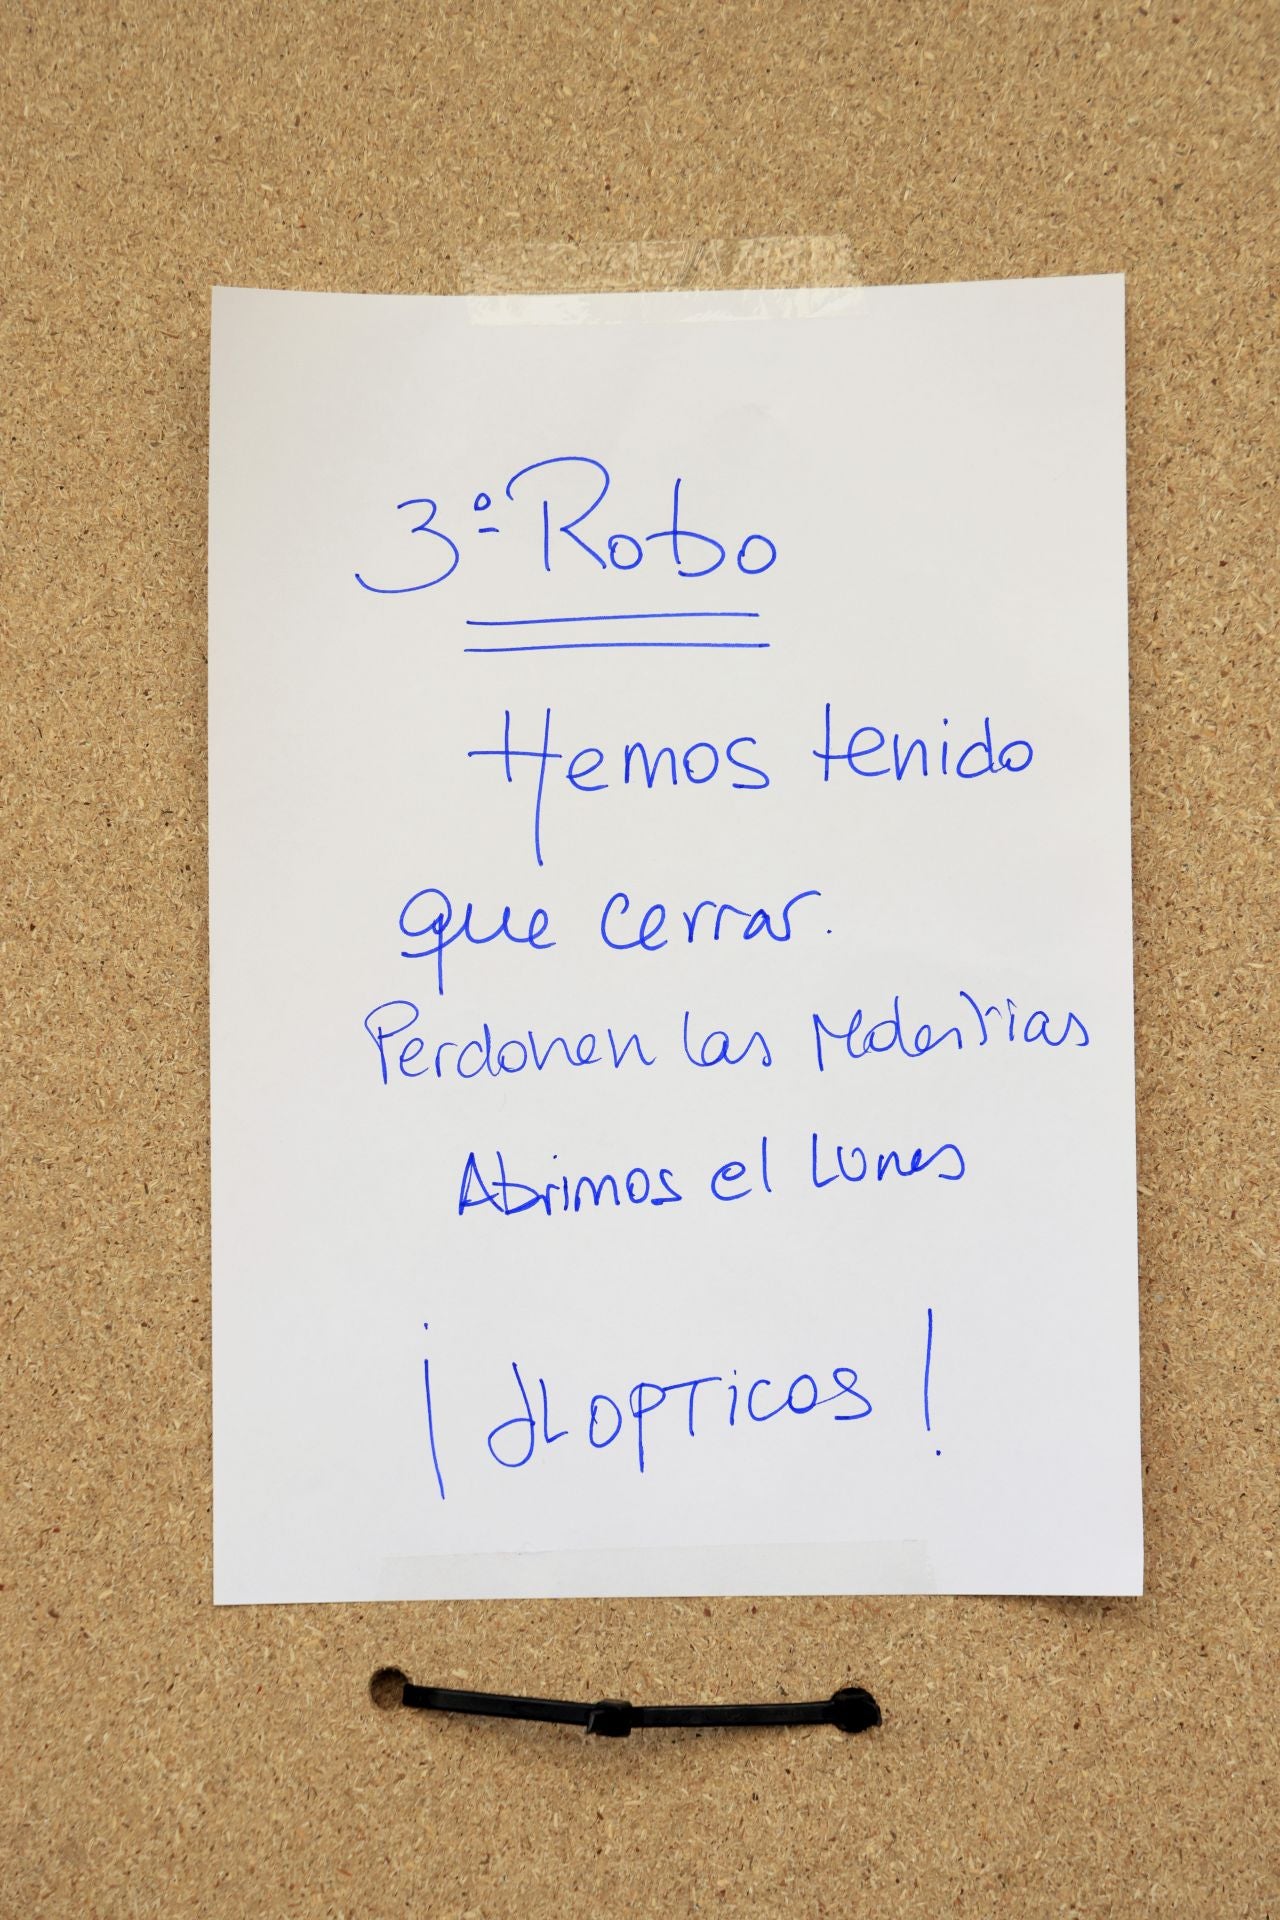 3º Robo
Hemos tenido
que cerrar.
Perdonen las Molestias
Abrimos el Lunes
¡dLOPTicos!